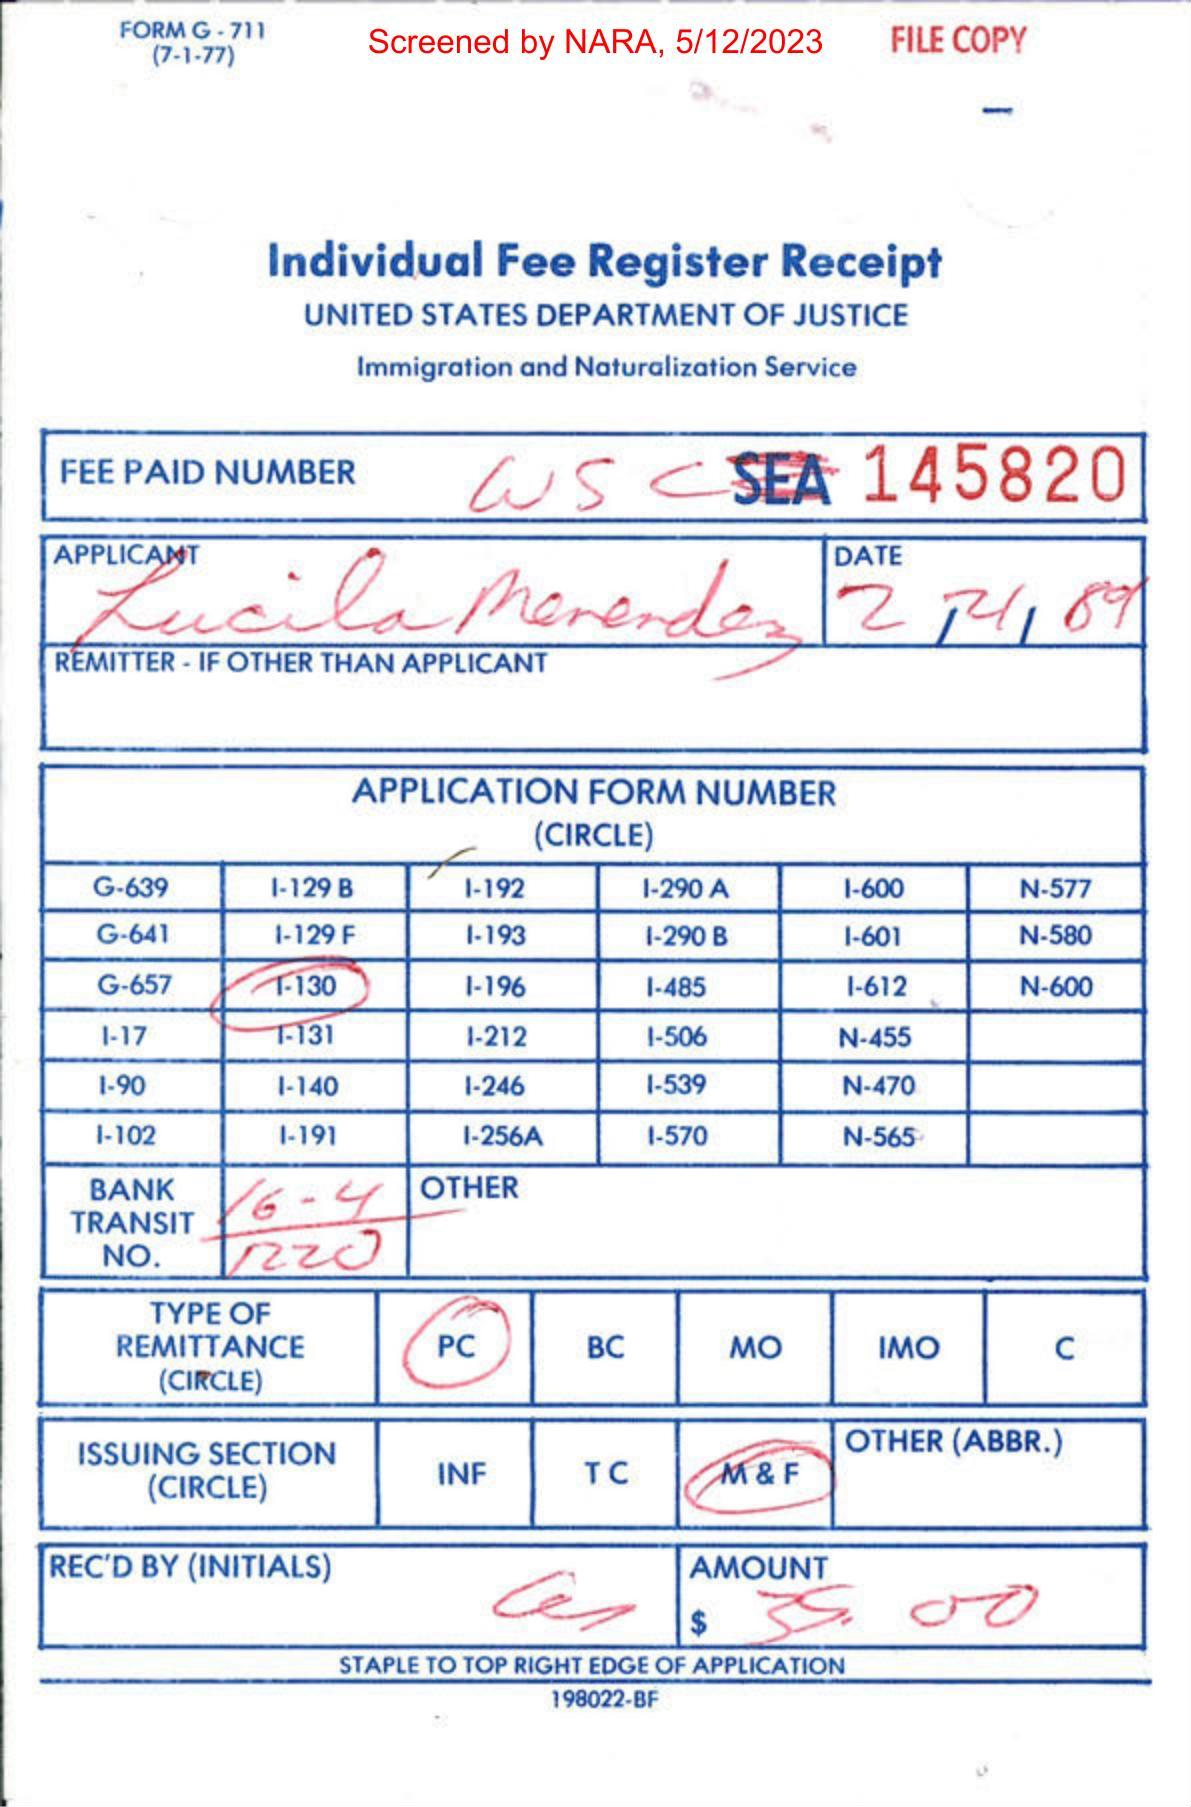 FORM G - 711
(7-1-77)
Screened by NARA, 5/12/2023
FILE COPY
Individual Fee Register Receipt
UNITED STATES DEPARTMENT OF JUSTICE
Immigration and Naturalization Service
FEE PAID NUMBER WSC SEA 145820
APPLICANT DATE
Lucila Menendez 2
REMITTER - IF OTHER THAN APPLICANT
APPLICATION FORM NUMBER
(CIRCLE)
G-639 I-129 B I-192 I-290 A I-600 N-577
G-641 I-129 F I-193 I-290 B I-601 N-580
G-657 I-130 I-196 I-485 I-612 N-600
I-17 I-131 I-212 I-506 N-455
I-90 I-140 I-246 I-539 N-470
I-102 I-191 I-256A I-570 N-565
BANK TRANSIT NO. 16-4
1220
OTHER
TYPE OF REMITTANCE (CIRCLE) PC BC MO IMO C
ISSUING SECTION (CIRCLE) INF T C M & F OTHER (ABBR.)
REC'D BY (INITIALS) AMOUNT
$ 35.00
STAPLE TO TOP RIGHT EDGE OF APPLICATION
198022-BF